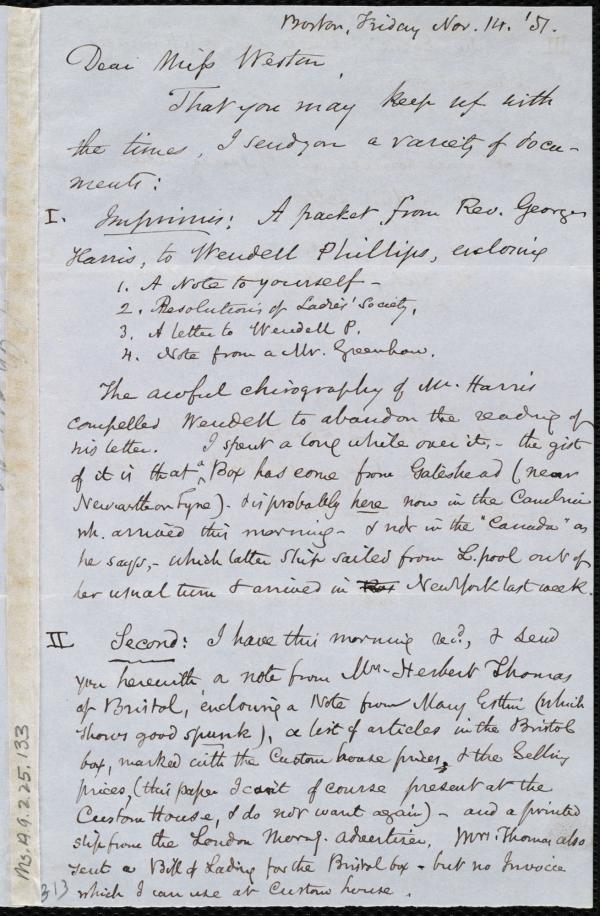 Boston, Friday Nov. 14. '51.
Dear Miss Weston,
That you may keep up with
the times, I send you a variety of docu-
ments:
I. Imprimis: A packet from Rev. George
Harris, to Wendell Phillips, enclosing
1. A Note to yourself -
2. Resolutions of Ladies' Society,
3. A letter to Wendell P.
4. Note from a Mr. Greenhow.
The awful chirography of Mr. Harris
compelled Wendell to abandon the reading of
his letter. I spent a long while over it, - the gist
of it is that a Box has come from Gateshead (near
Newcastle on Tyne). & is probably here now in the Cambria
wh. arrived this morning - & not in the "Canada" as
he says, - which latter ship sailed from L.pool out of
her usual turn & arrived in New York last week.
II Second: I have this morning recd, & send
you herewith, a note from Mrs. Herbert Thomas
of Bristol, enclosing a Note from Mary Estlin (which
shows good spunk), a list of articles in the Bristol
box, marked with the Custom house prices, & the Selling
prices, (this paper I can't of course present at the
Custom House, & do not want again) - and a printed
slip from the London Morng. Advertiser. Mrs. Thomas also
sent a Bill of Lading for the Bristol box - but no Invoice
which I can use at Custom house.
Ms. A.9.2.25.133
313